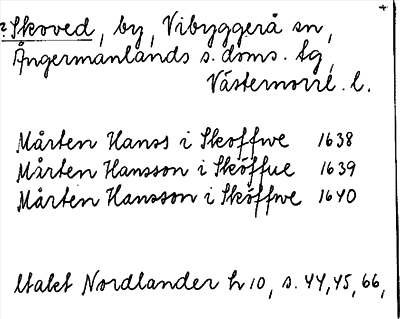 ? Skoved, by, Vibyggerå sn,
Ångermanlands s. doms. tg,
Västernorrl. l.
Mårten Hanss i Skoffwe 1638
Mårten Hansson i Sköffue 1639
Mårten Hansson i Sköffwe 1640
Utalet Nordlander h 10, s. 44, 45, 66,